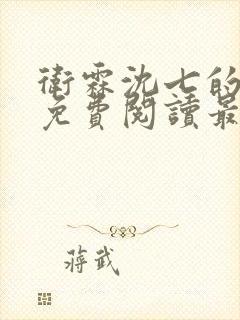 衛霖沈七的
免費閱讀最
蔣武